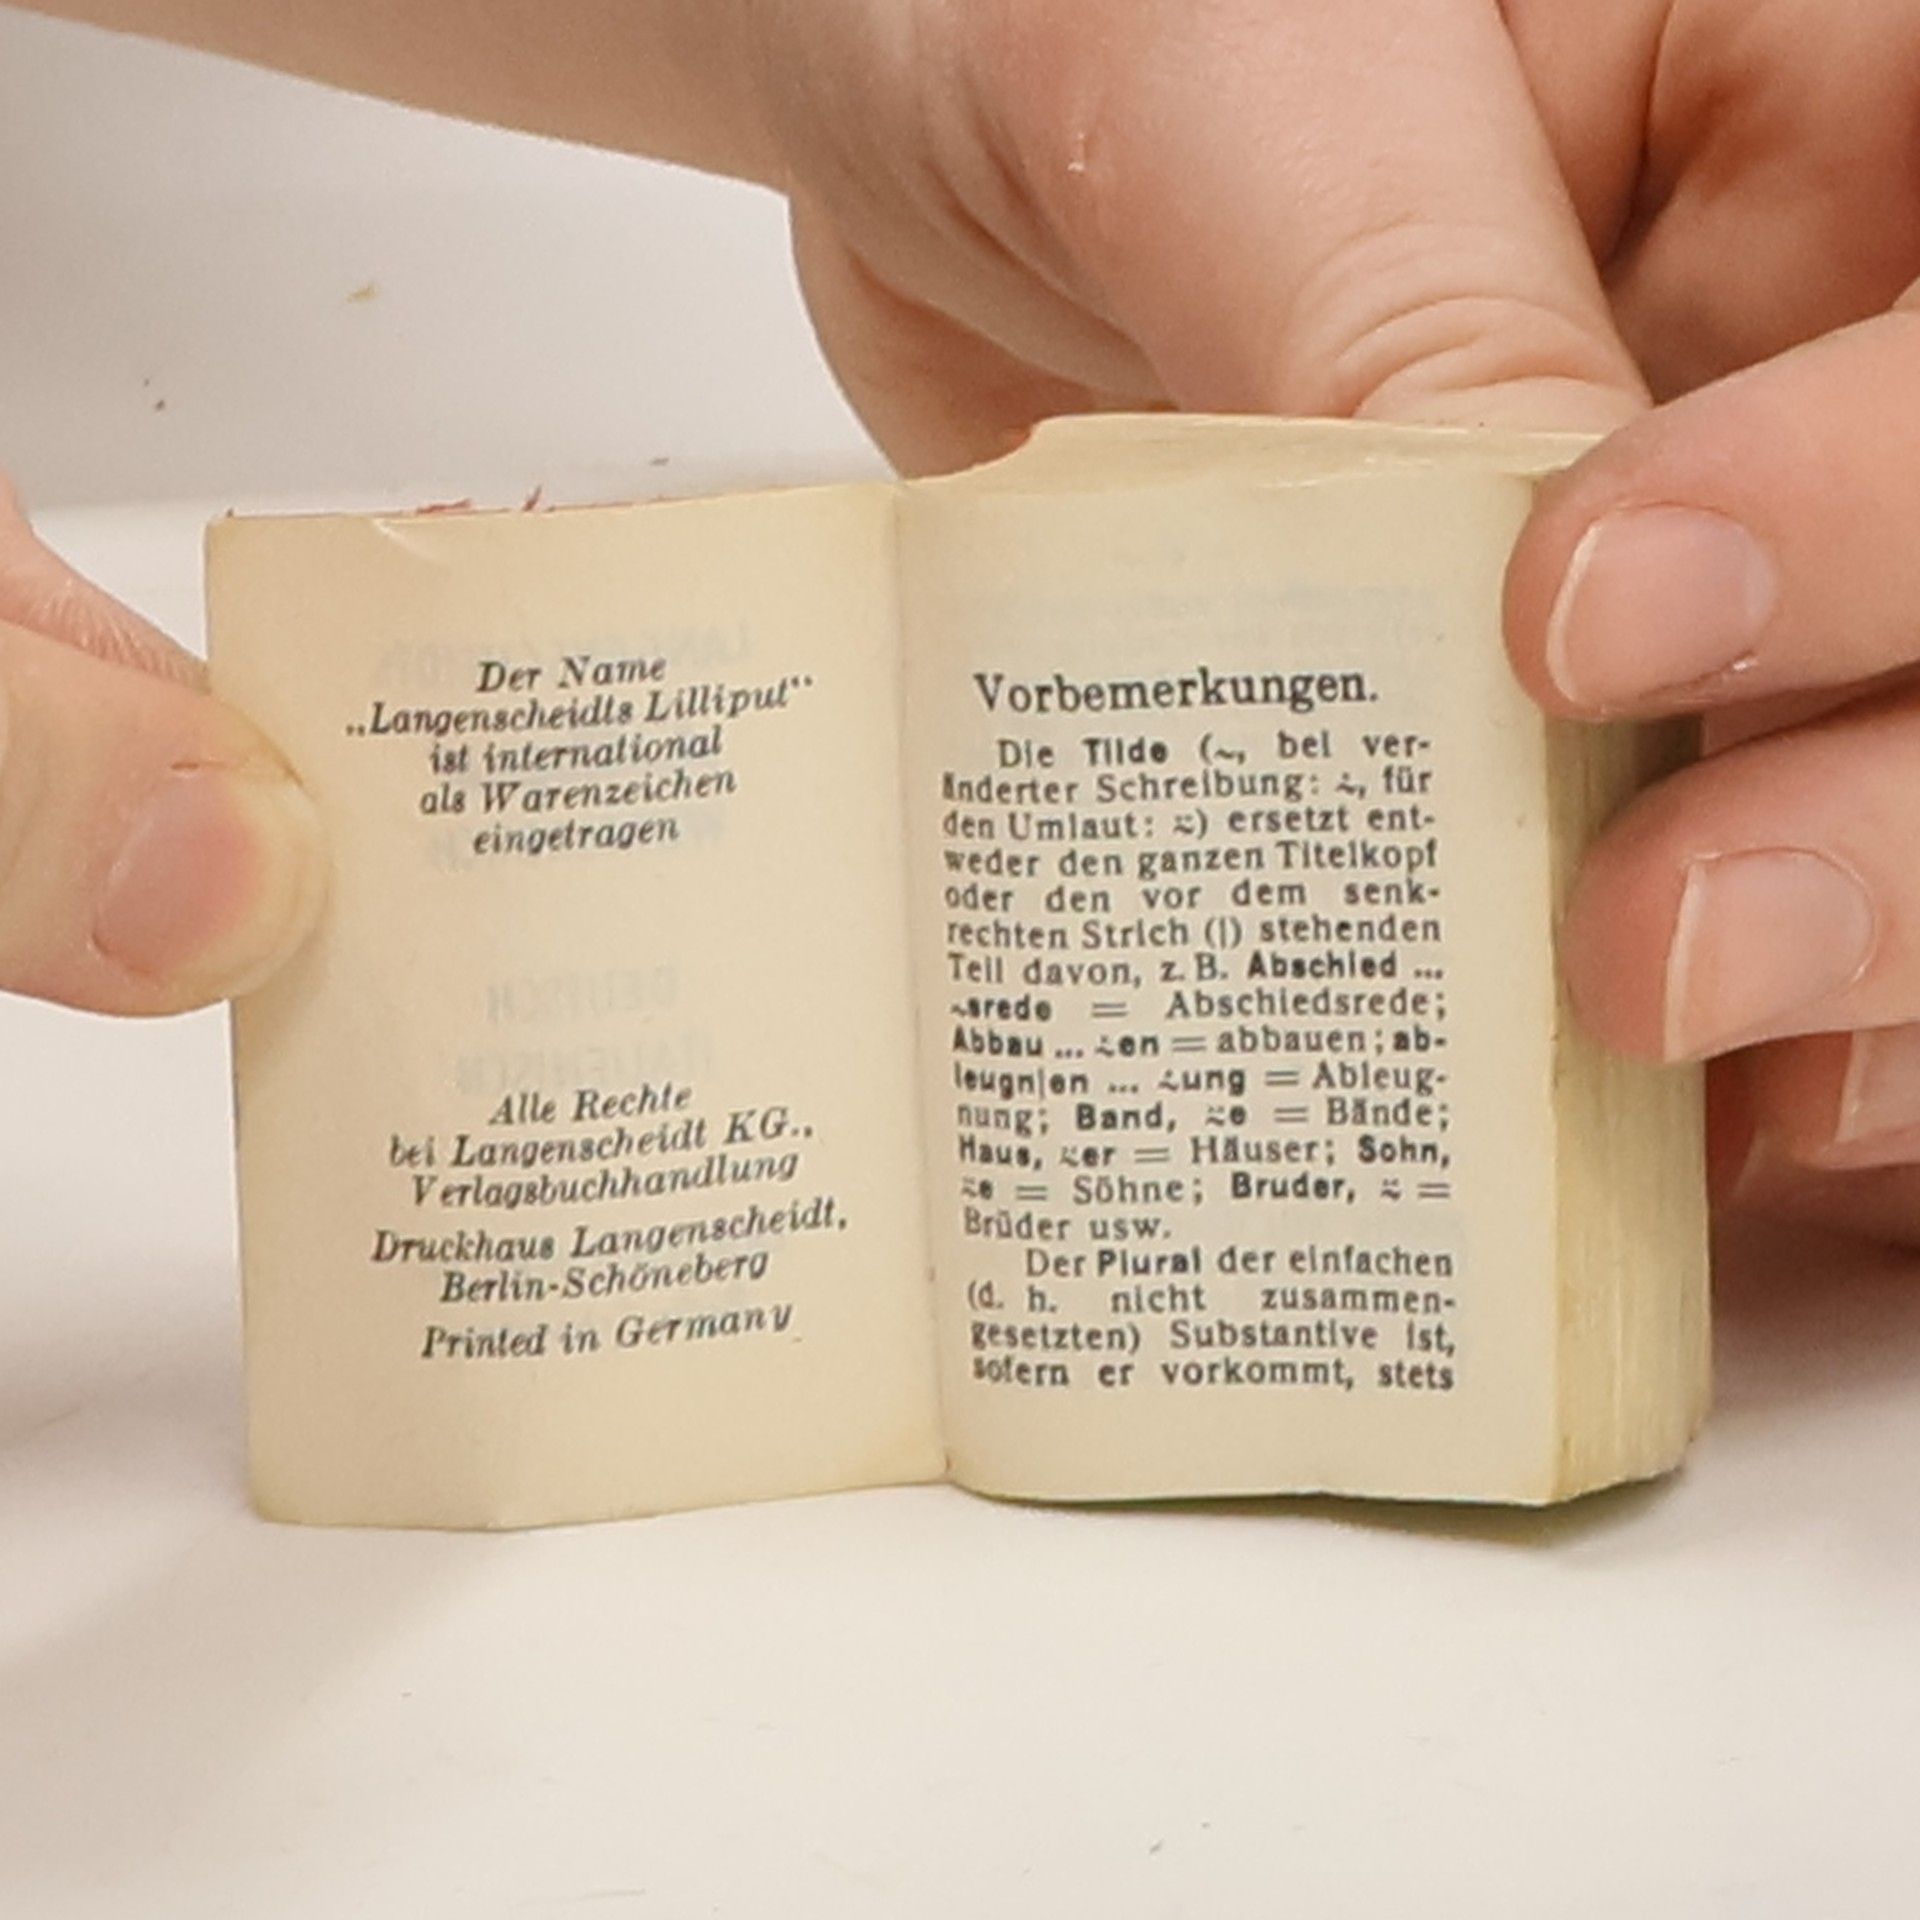 Der Name
„Langenscheidts Lilliput“
ist international
als Warenzeichen
eingetragen
Alle Rechte
bei Langenscheidt KG.,
Verlagsbuchhandlung
Druckhaus Langenscheidt,
Berlin-Schöneberg
Printed in Germany
Vorbemerkungen.
Die Tilde (~, bei ver-
änderter Schreibung: ∻, für
den Umlaut: ⩬) ersetzt ent-
weder den ganzen Titelkopf
oder den vor dem senk-
rechten Strich (|) stehenden
Teil davon, z. B. Abschied ...
~srede = Abschiedsrede;
Abbau ... ∻en = abbauen; ab-
leugn|en ... ∻ung = Ableug-
nung; Band, ⩬e = Bände;
Haus, ⩬er = Häuser; Sohn,
⩬e = Söhne; Bruder, ⩬ =
Brüder usw.
Der Plural der einfachen
(d. h. nicht zusammen-
gesetzten) Substantive ist,
sofern er vorkommt, stets